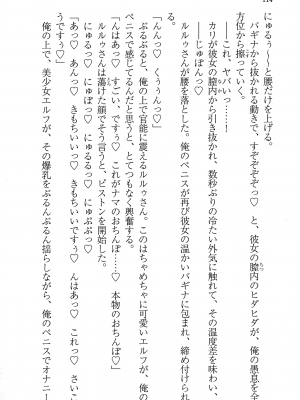 にゅるぅ〜〜と腰だけを上げる。
バギナから抜かれる動きで、すぞぞぞぞっ♡　と、彼女の膣内のヒダヒダが、俺の愚息を全
方位から擦っていく。
――これ、ヤバいっ…！
カリが彼女の膣内から引き抜かれ、数秒ぶりの冷たい外気に触れて、その温度差を味わい、
――じゅぽんっ♡
ルルゥさんが腰を落とした。俺のペニスが再び彼女の温かいバギナに包まれ、締め付けられ
る。
「んっ♡　くぅぅんっ♡」
ぶるぶると、俺の上で官能に震えるルルゥさん。このはちゃめちゃに可愛いエルフが、俺の
ペニスで感じてるんだと思うと、とてつもなく興奮する。
「んはあっ♡　すごい、ですぅ♡　これがナマのおちんぽ……♡　本物のおちんぽ♡」
ルルゥさんは蕩けた顔でそう言うと、ピストンを開始した。
にゅるっ♡　にゅぽっ♡　にゅるるっ♡　にゅぷぷっ♡
「あっ♡　あんっ♡　きもちいいっ♡　きもちいいですぅ♡　んはあっ♡　これっ♡　さいこ
うですぅっ♡」
俺の上で、美少女エルフが、その爆乳をぶるんぶるん揺らしながら、俺のペニスでオナニー